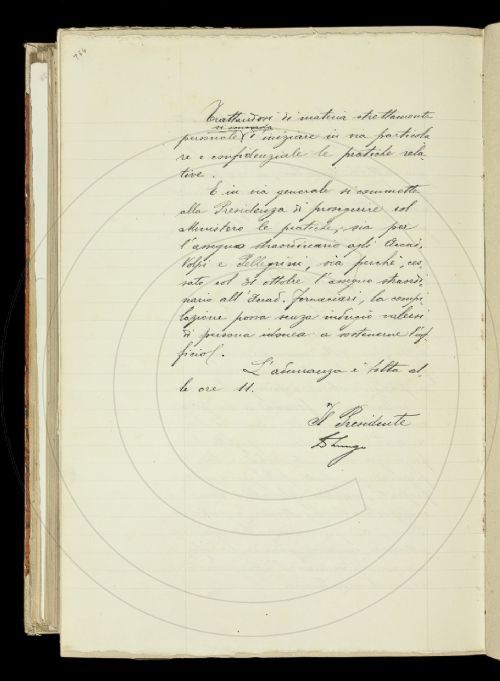 Trattandosi di materia strettamente
si comincia
personale d'iniziare in via particola
re e confidenziale le pratiche rela
tive.
E in via generale si commette
alla Presidenza di proseguire col
Ministero le pratiche, sia per
l'assegno straordinario agli Accad.
Volpi e Pellegrini, sia perchè, ces
sato col 31 ottobre l'assegno straordi
nario all'Accad. Fornaciari, la compi
lazione possa senza indugio valersi
di persona idonea a sostenerne l'uf
ficio.
L'adunanza è tolta al
le ore 11.
Il Presidente